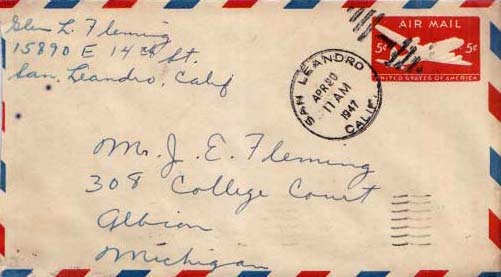 Glen L. Fleming
15890 E 14th St.
San Leandro, Calif
SAN LEANDRO
APR 20
11 AM
1947
CALIF.
AIR MAIL
5¢ 5¢
UNITED STATES OF AMERICA
Mr. J. E. Fleming
308 College Court
Albion
Michigan